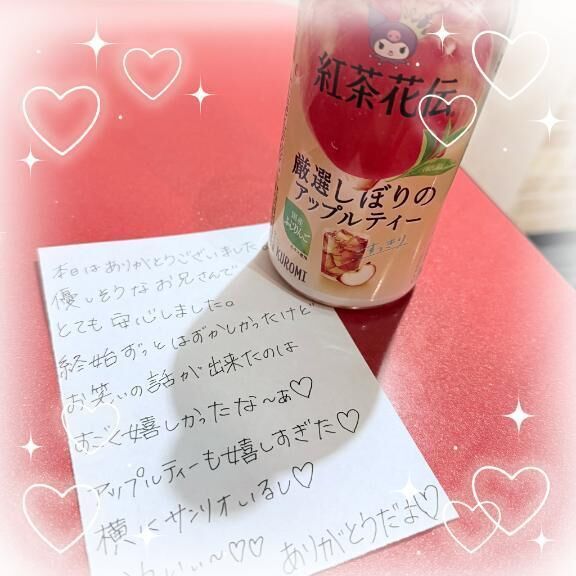 紅茶花伝
厳選しぼりの
アップルティー
国産
ふじりんご
すっきり
KUROMI
本日はありがとうございました。
優しそうなお兄さんで
とても安心しました。
終始ずっとはずかしかったけど
お笑いの話が出来たのは
すごく嬉しかったな〜ぁ♡
アップルティーも嬉しすぎた♡
横にサンリオいるし♡
いい〜♡♡ ありがとうだよ♡